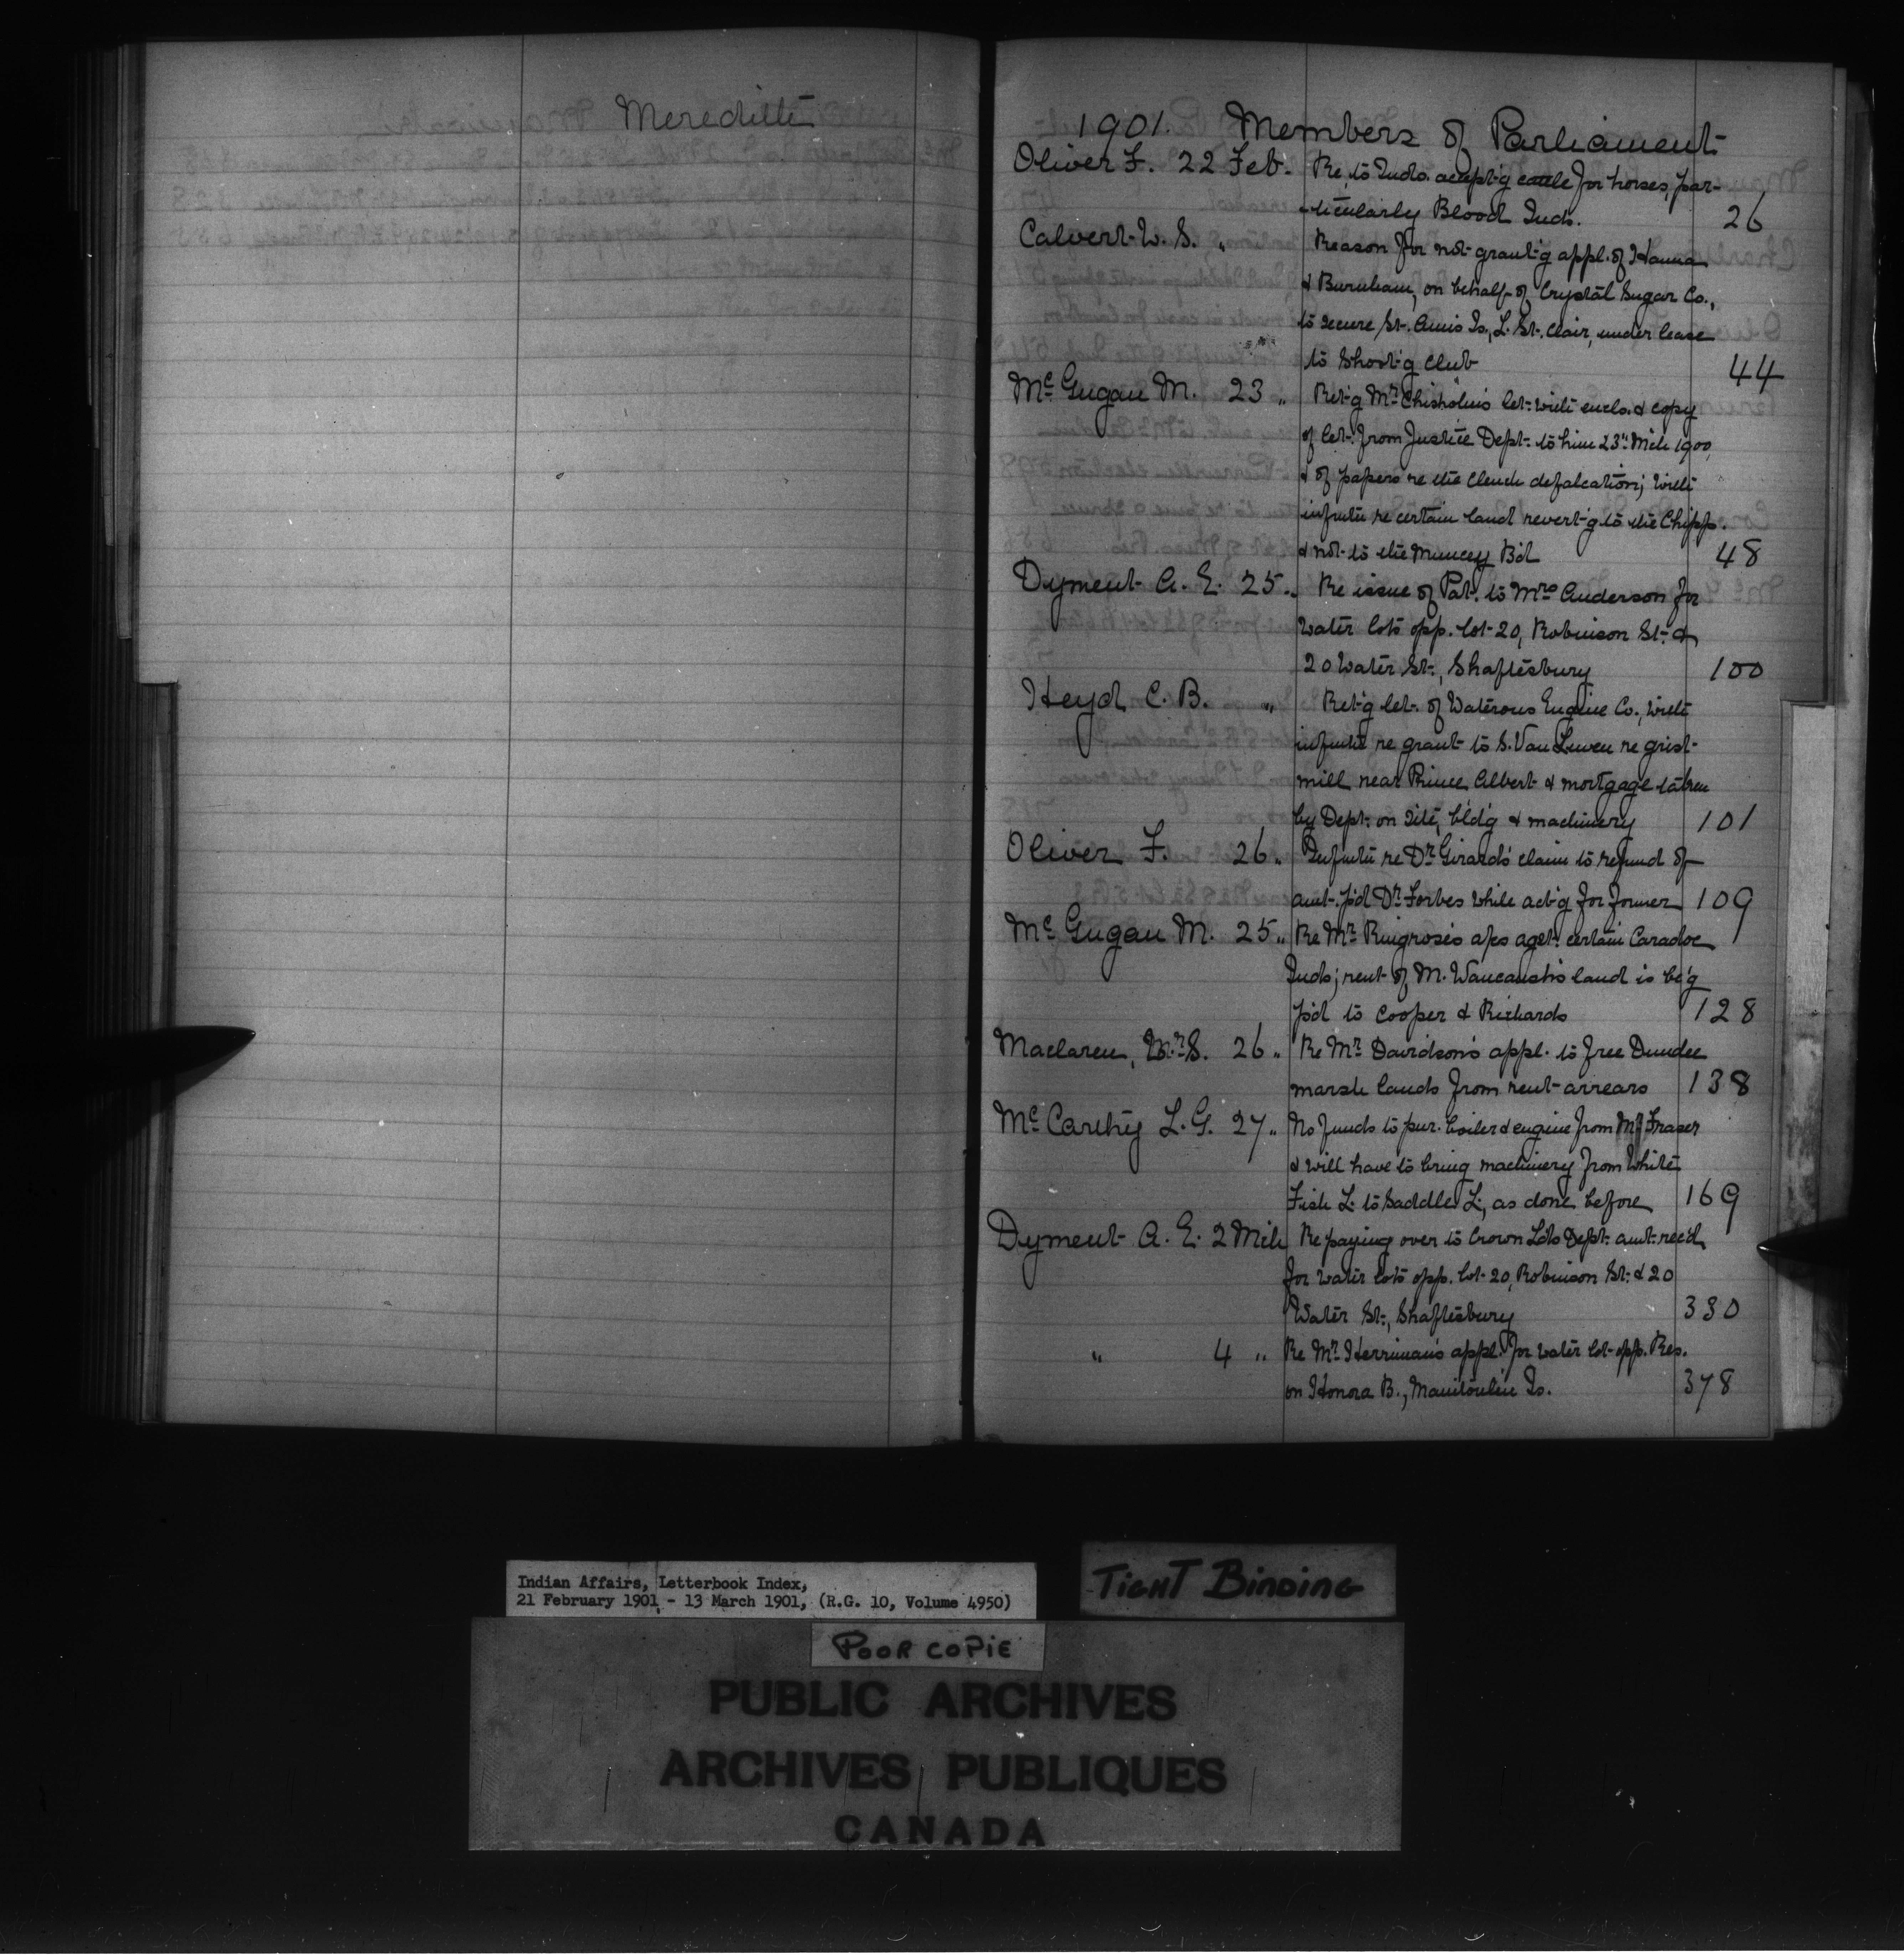 Meredith
1901. Members of Parliament
Oliver F. 22 Feb. Re. to Inds. accept'g cattle for horses, par-
-ticularly Blood Inds. 26
Calvert W. S. " Reason for not grant'g appl. of Hanna
& Burnham, on behalf of Crystal Sugar Co.,
to secure St. Anns Is., L. St. Clair, under lease
to Shoot'g Club 44
McGugan M. 23 " Ret'g Mr. Chisholm's let. with encls. & copy
of let. from Justice Dept. to him 23rd Mch 1900,
& of papers re the Clench defalcation; with
infmtn re certain land revert'g to the Chipp.
& not to the Muncey Bd 48
Dyment A. E. 25 " Re issue of Pat. to Mrs Anderson for
water lots opp. lot 20, Robinson St. &
20 Water St., Shaftesbury 100
Heyd C. B. " Ret'g let. of Waterous Engine Co., with
infmtn re grant to S. Van Luven re grist-
mill near Prince Albert & mortgage taken
by Dept. on site, bld'g & machinery 101
Oliver F. 26 " Infmtn re Dr. Girard's claim to refund of
amt. p'd Dr. Forbes while act'g for former 109
McGugan M. 25 " Re Mr. Ringrose's a/cs agst. certain Caradoc
Inds; rent of M. Waucaush's land is be'g
p'd to Cooper & Richards 128
Maclaren, W. S. 26 " Re Mr. Davidson's appl. to free Dundee
marsh lands from rent arrears 138
McCarthy L. G. 27 " No funds to pur. boiler & engine from Mr. Fraser
& will have to bring machinery from White
Fish L. to Saddle L., as done before 169
Dyment A. E. 2 Mch Re paying over to Crown Lds Dept. amt. rec'd
for water lots opp. lot 20, Robinson St. & 20
Water St., Shaftesbury 330
" 4 " Re Mr. Herriman's appl. for water lot opp. Res.
on Honora B., Manitoulin Is. 378
Indian Affairs, Letterbook Index,
21 February 1901 - 13 March 1901, (R.G. 10, Volume 4950)
TIGHT BINDING
POOR COPIE
PUBLIC ARCHIVES
ARCHIVES PUBLIQUES
CANADA